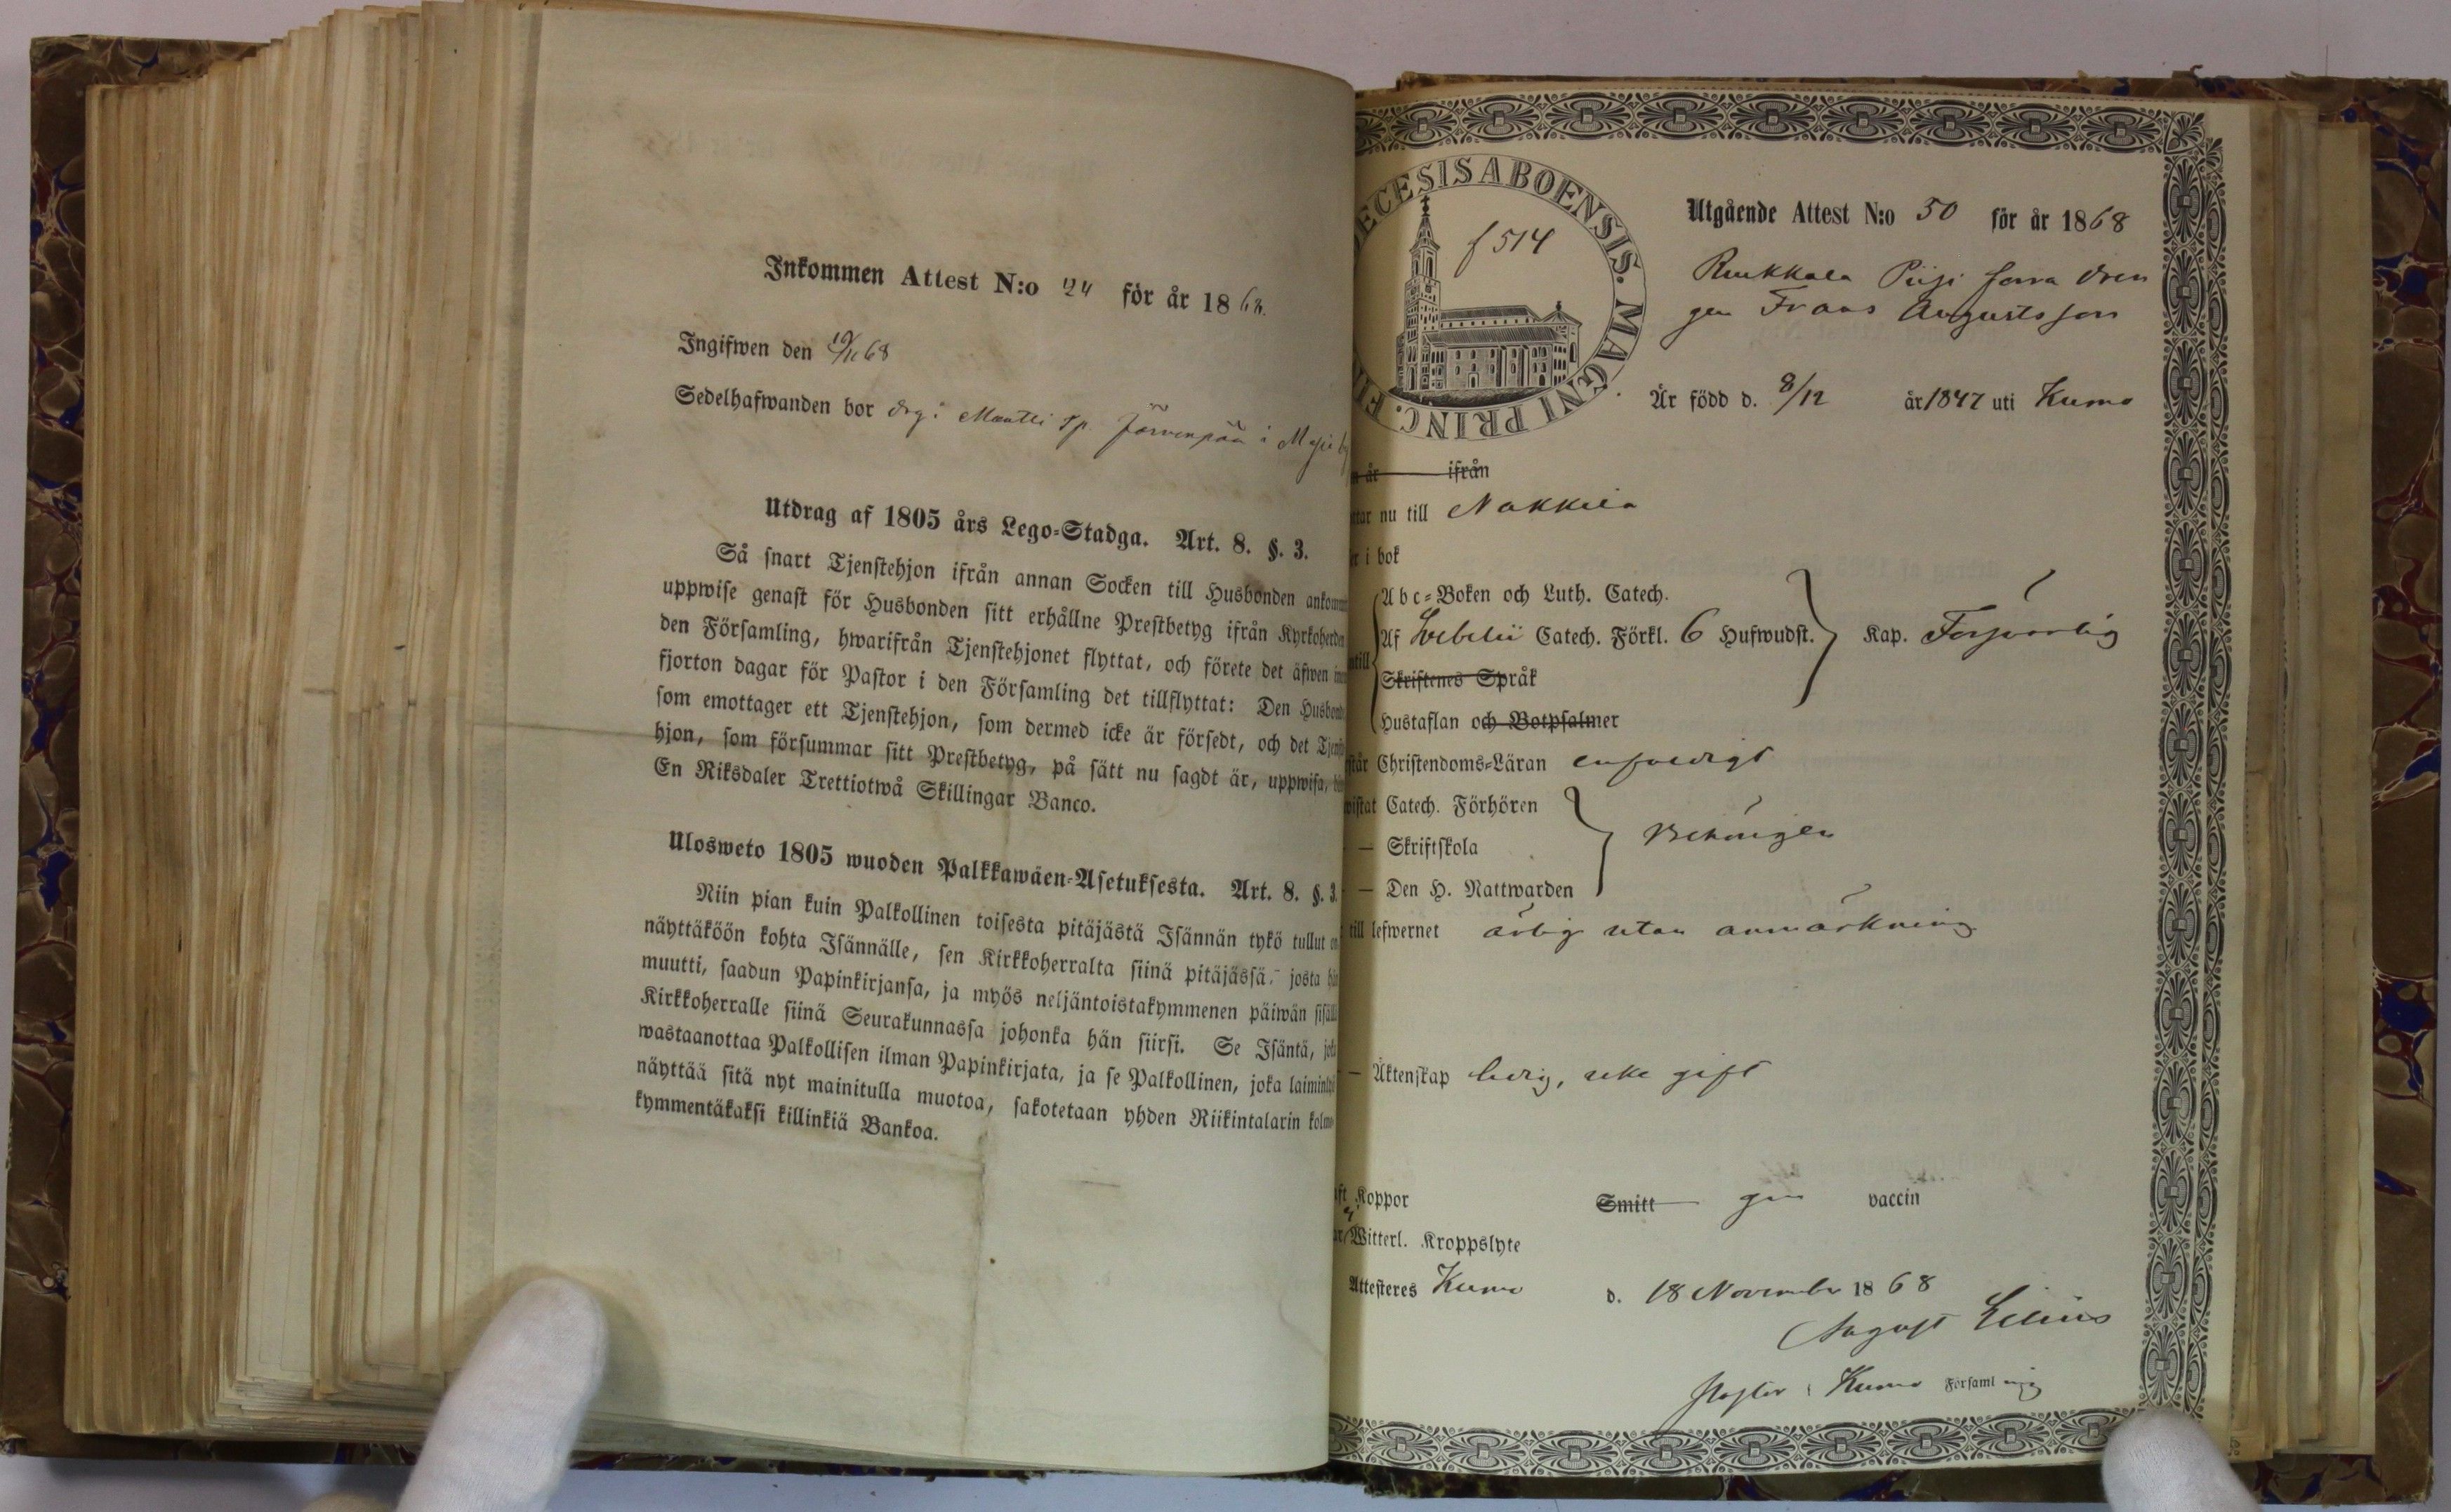 Inkommen Attest N:o 24 för år 1868.
Ingifwen den 19/11 68
Sedelhafwanden bor drg. Mantti Järvenpää i
Utdrag af 1805 års Lego-Stadga. Art. 8. §. 3.
Så snart Tjenstehjon ifrån annan Socken till Husbonden
uppwise genast för Husbonden sitt erhållne Prestbetyg ifrån Kyrkoherden
den Församling, hwarifrån Tjenstehjonet flyttat, och förete det äfwen
fjorton dagar för Pastor i den Församling det tillflyttat: Den
som emottager ett Tjenstehjon, som dermed icke är försedt, och det
hjon, som försummar sitt Prestbetyg, på sätt nu sagdt är, uppwisa,
En Riksdaler Trettiotwå Skillingar Banco.
Ulosweto 1805 wuoden Palkkawäen-Asetuksesta. Art. 8. §. 3.
Niin pian kuin Palkollinen toisesta pitäjästä Isännän tykö tullut on
näyttäköön kohta Isännälle, sen Kirkkoherralta siinä pitäjässä, josta
muutti, saadun Papinkirjansa, ja myös neljäntoistakymmenen päiwän
Kirkkoherralle siinä Seurakunnassa johonka hän siirsi. Se Isäntä,
wastaanottaa Palkollisen ilman Papinkirjata, ja se Palkollinen, joka
näyttää sitä nyt mainitulla muotoa, sakotetaan yhden Riikintalarin kolme-
kymmentäkaksi killinkiä Bankoa.
ECESIS ABOENSIS. MAGNI PRINC.
f 514
Utgående Attest N:o 50 för år 1868
Ruskkala Piisi forra dren
gen Frans Augustsson
Är född d. 8/12 år 1847 uti Kumo
år ifrån
nu till Nakkila
i bok
Abc-Boken och Luth. Catech.
Af Svebelii Catech. Förkl. 6 Hufwudst. Kap. Försvarlig
Skriftenes Språk
Hustaflan och Botpsalmer
Christendoms-Läran enfaldigt
Catech. Förhören
— Skriftskola
— Den H. Nattwarden
Behörigen
till lefwernet ärlig utan anmärkning
— Äktenskap ledig, icke gift
Koppor Smitt gm vaccin
Witterl. Kroppslyte
Attesteres Kumo d. 18 November 1868
August
Pastor i Kumo Församling